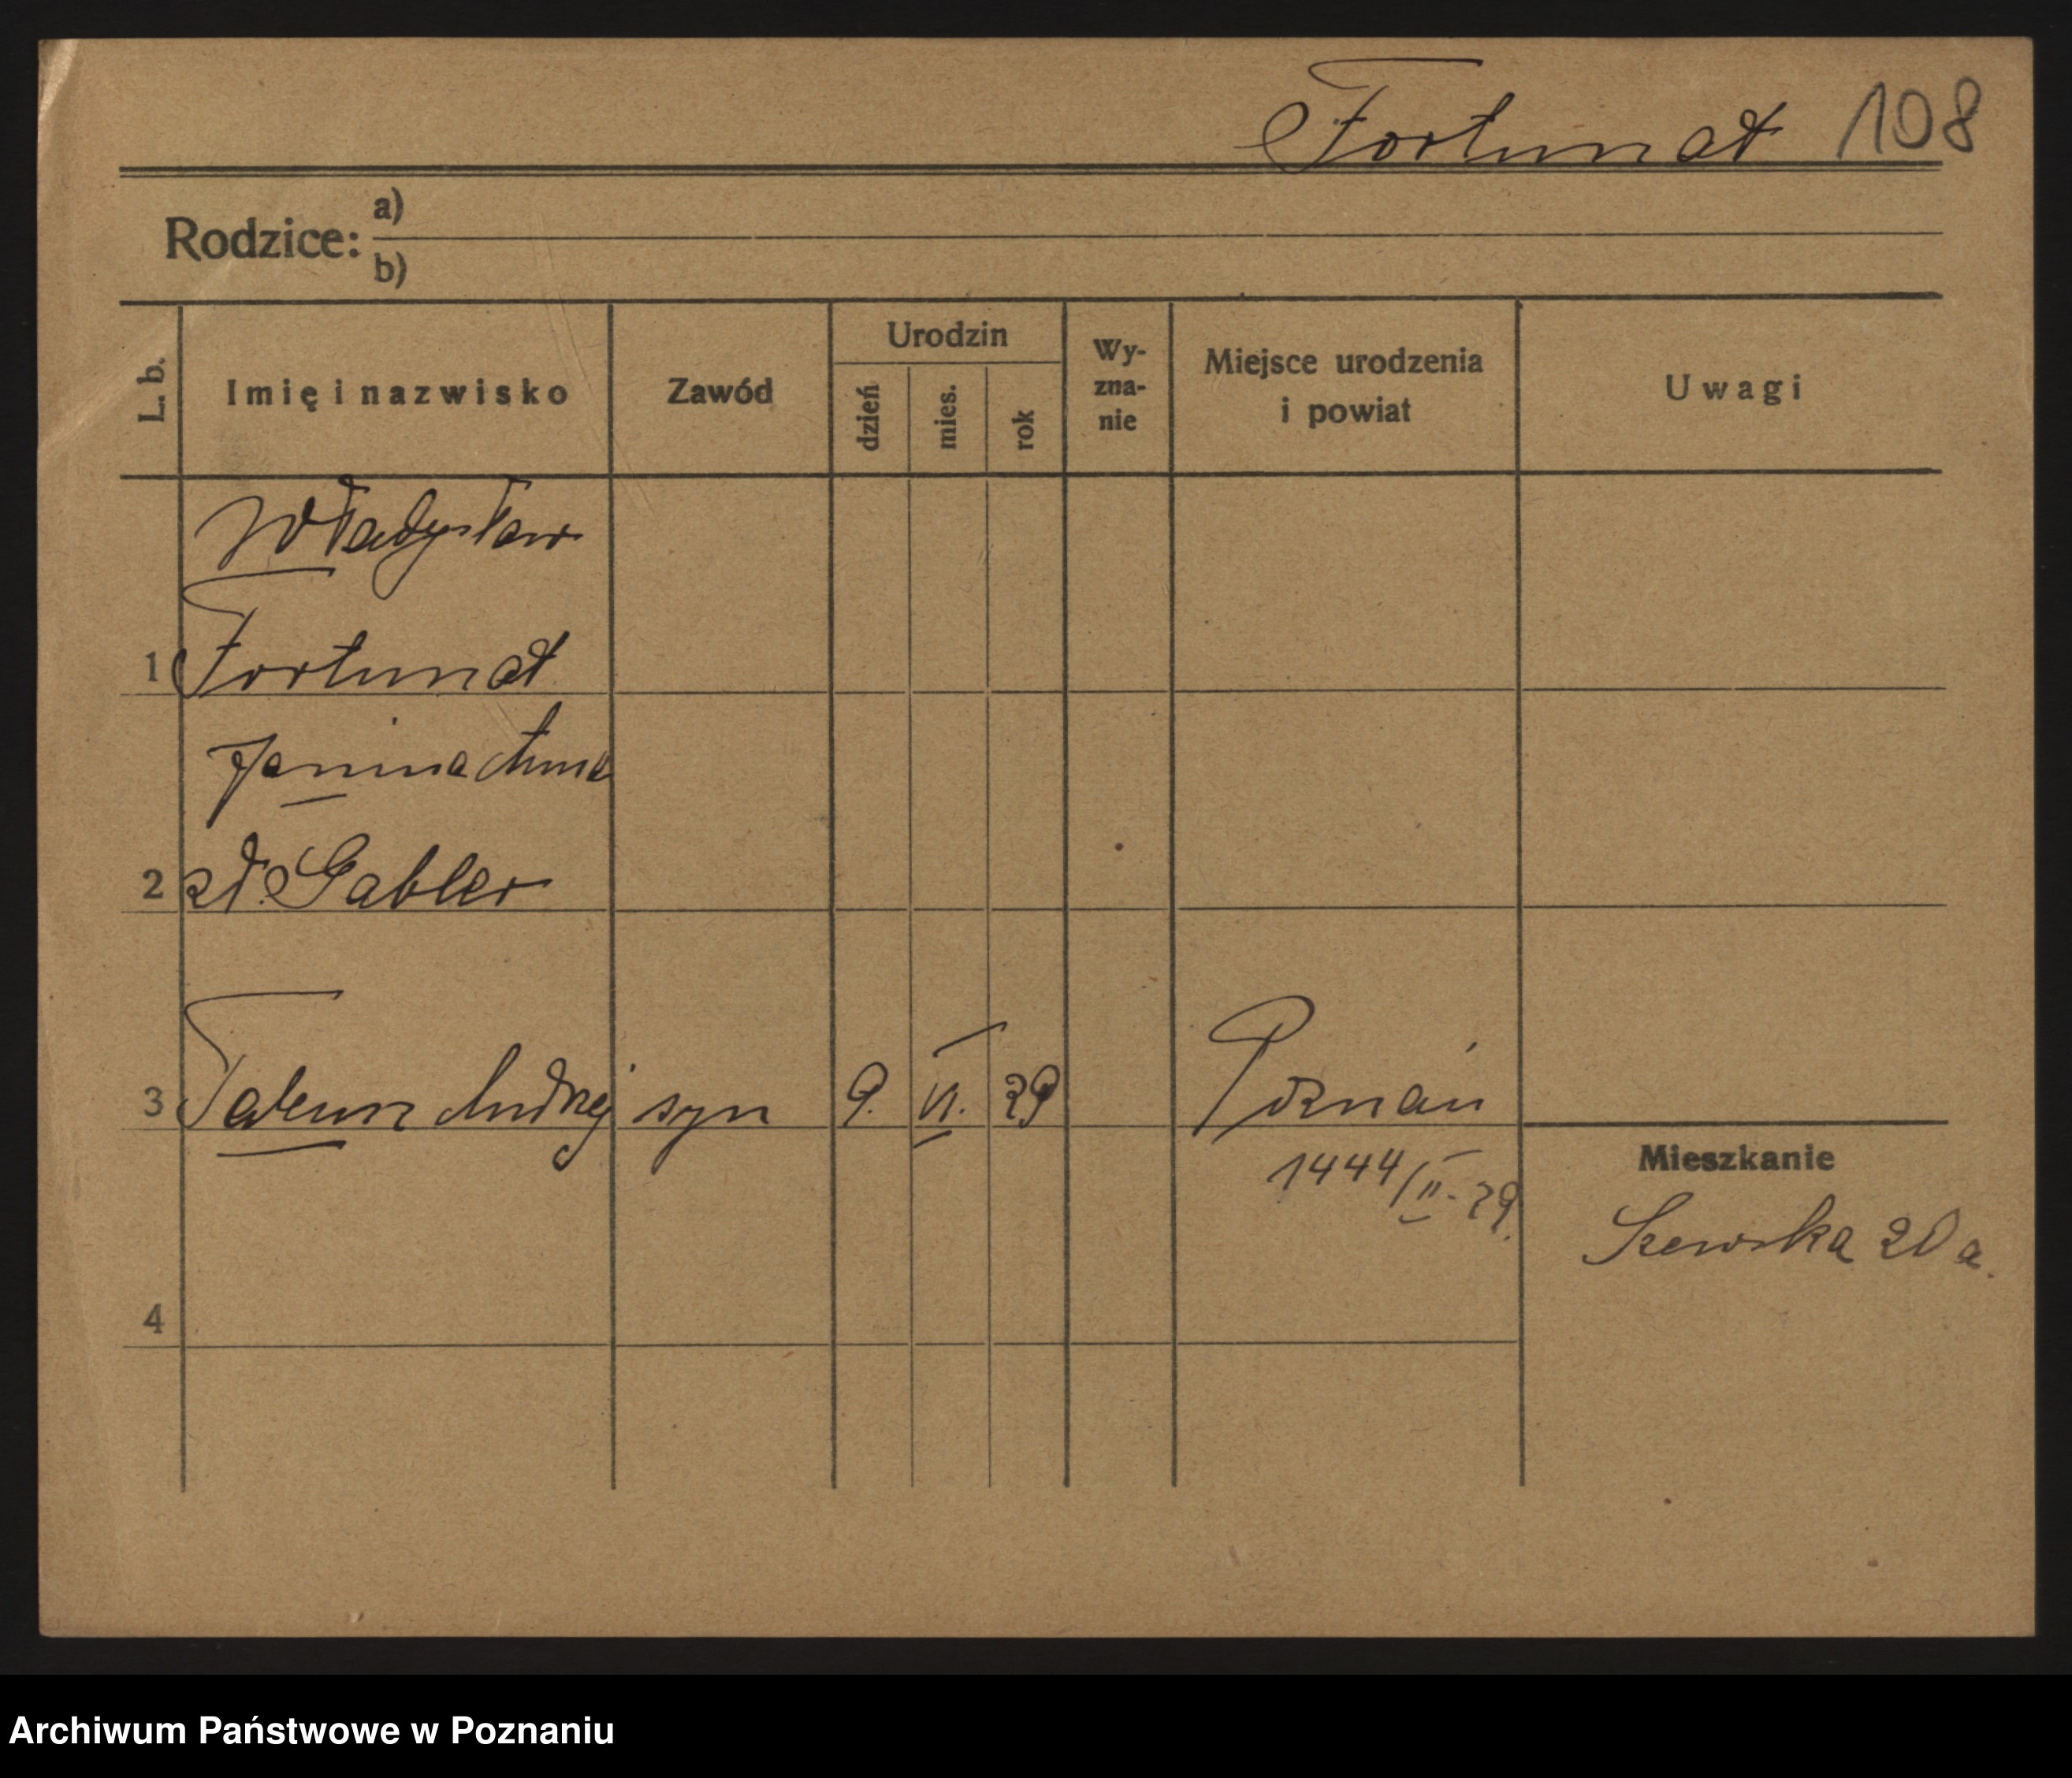 Fortunat 108
Rodzice: a)
b)
L. b.
Imię i nazwisko
Zawód
Urodzin
dzień
mies.
rok
Wy-
zna-
nie
Miejsce urodzenia
i powiat
Uwagi
Władysław
1 Fortunat
Janina Anna
2 zd. Gabler
3 Andrzej syn 9. VI. 29 Poznań
1444/II-29.
Mieszkanie
Szewska 20a.
4
Archiwum Państwowe w Poznaniu